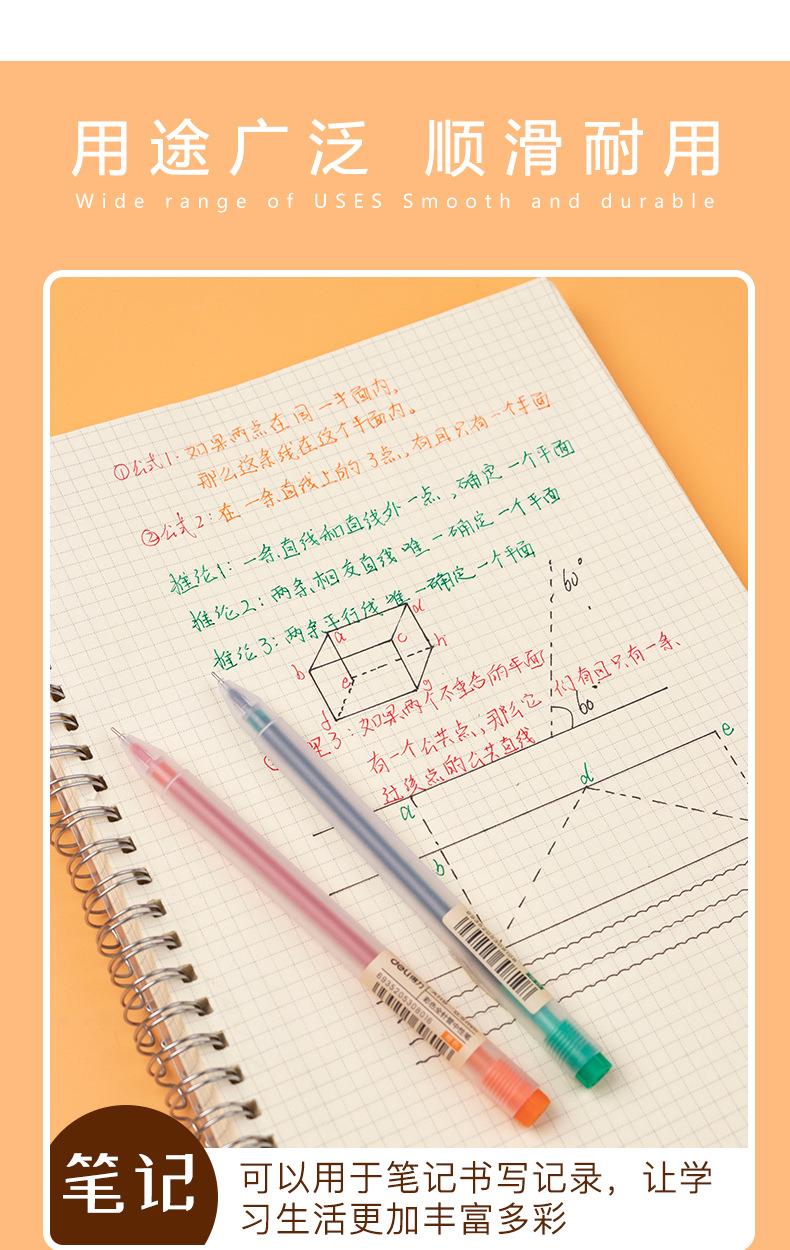 用途广泛 顺滑耐用
Wide range of USES Smooth and durable
①公式1：如果两点在同一平面内，
那么这条线在这个平面内。
②公式2：在一条直线上的3点，有且只有一个平面
推论1：一条直线和直线外一点，确定一个平面
推论2：两条相交直线唯一确定一个平面
推论3：两条平行线唯一确定一个平面
60°
a
d
c
h
b
e
g
d
理3：如果两个不重合的平面
有一个公共点，那么它们有且只有一条
过该点的公共直线
60°
e
d
a
b
deli得力
彩色全针管中性笔
6935205308016
笔记
可以用于笔记书写记录，让学
习生活更加丰富多彩